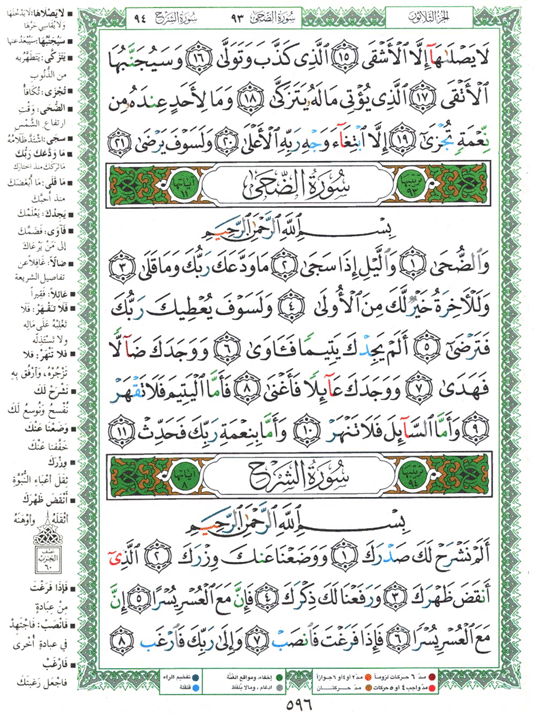 الجزء الثلاثون
سورة الضحى ٩٣
سورة الشرح ٩٤
لَا يَصْلَىٰهَآ إِلَّا ٱلْأَشْقَى ١٥ ٱلَّذِى كَذَّبَ وَتَوَلَّىٰ ١٦ وَسَيُجَنَّبُهَا
ٱلْأَتْقَى ١٧ ٱلَّذِى يُؤْتِى مَالَهُۥ يَتَزَكَّىٰ ١٨ وَمَا لِأَحَدٍ عِندَهُۥ مِن
نِّعْمَةٍ تُجْزَىٰٓ ١٩ إِلَّا ٱبْتِغَآءَ وَجْهِ رَبِّهِ ٱلْأَعْلَىٰ ٢٠ وَلَسَوْفَ يَرْضَىٰ ٢١
سُورَةُ الضُّحَىٰ
ترتيبها ٩٣
آياتها ١١
بِسْمِ ٱللَّهِ ٱلرَّحْمَٰنِ ٱلرَّحِيمِ
وَٱلضُّحَىٰ ١ وَٱلَّيْلِ إِذَا سَجَىٰ ٢ مَا وَدَّعَكَ رَبُّكَ وَمَا قَلَىٰ ٣
وَلَلْآخِرَةُ خَيْرٌ لَّكَ مِنَ ٱلْأُولَىٰ ٤ وَلَسَوْفَ يُعْطِيكَ رَبُّكَ
فَتَرْضَىٰٓ ٥ أَلَمْ يَجِدْكَ يَتِيمًا فَـَٔاوَىٰ ٦ وَوَجَدَكَ ضَآلًّا
فَهَدَىٰ ٧ وَوَجَدَكَ عَآئِلًا فَأَغْنَىٰ ٨ فَأَمَّا ٱلْيَتِيمَ فَلَا تَقْهَرْ
٩ وَأَمَّا ٱلسَّآئِلَ فَلَا تَنْهَرْ ١٠ وَأَمَّا بِنِعْمَةِ رَبِّكَ فَحَدِّثْ ١١
سُورَةُ الشَّرْحِ
ترتيبها ٩٤
آياتها ٨
بِسْمِ ٱللَّهِ ٱلرَّحْمَٰنِ ٱلرَّحِيمِ
أَلَمْ نَشْرَحْ لَكَ صَدْرَكَ ١ وَوَضَعْنَا عَنكَ وِزْرَكَ ٢ ٱلَّذِىٓ
أَنقَضَ ظَهْرَكَ ٣ وَرَفَعْنَا لَكَ ذِكْرَكَ ٤ فَإِنَّ مَعَ ٱلْعُسْرِ يُسْرًا ٥ إِنَّ
مَعَ ٱلْعُسْرِ يُسْرًا ٦ فَإِذَا فَرَغْتَ فَٱنصَبْ ٧ وَإِلَىٰ رَبِّكَ فَٱرْغَب ٨
لا يصلاها: لا يدخلها
ولا يقاسي حرها
سيجنبها: سيبعد عنها
يتزكى: يتطهر به
من الذنوب
تجزى: تكافأ
الضحى: وقت
ارتفاع الشمس
سجى: اشتد ظلامه
ما ودعك ربك
ما تركك منذ اختارك
ما قلى: ما أبغضك
منذ أحبك
يجدك: يعلمك
فآوى: فضمك
إلى من يرعاك
ضالا: غافلا عن
تفاصيل الشريعة
عائلا: فقيرا
فلا تقهر: فلا
تغلبه على ماله
ولا تستذله
فلا تنهر: فلا
تزجره، وارفق به
نشرح لك
نفسح ونوسع لك
وضعنا عنك
خففنا عنك
وزرك
ثقل أعباء النبوة
أنقض ظهرك
أثقله وأوهنه
نصف
الحزب
٦٠
فإذا فرغت
من عبادة
فانصب: فاجتهد
في عبادة أخرى
فارغب
فاجعل رغبتك
مد ٦ حركات لزوما
مد ٢ أو ٤ أو ٦ جوازا
إخفاء، ومواقع الغنة
تفخيم الراء
مد واجب ٤ أو ٥ حركات
مد حركتان
إدغام، وما لا يلفظ
قلقلة
٥٩٦